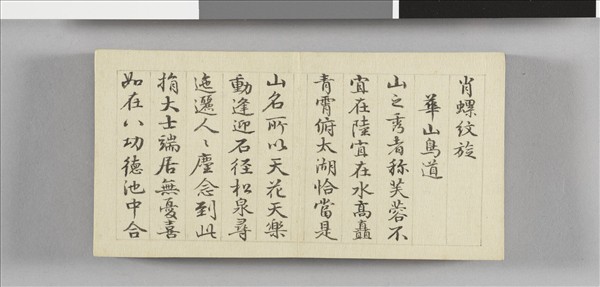 肖螺紋旋
華山鳥道
山之秀者称芙蓉不
宜在陸宜在水高矗
青霄俯太湖恰當是
山名所以天花天樂
動逢迎石徑松泉尋
迤邐人〻塵念到此
捐大士端居無憂喜
如在八功德池中合